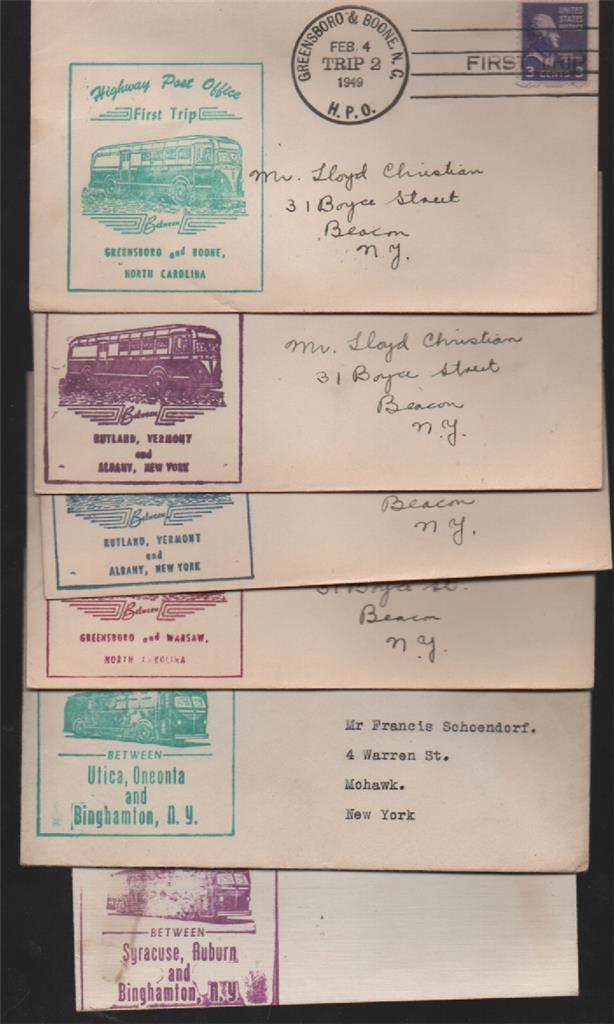 GREENSBORO & BOONE, N.C.
FEB. 4
TRIP 2
1949
H.P.O.
FIRST TRIP
UNITED
STATES
3 CENTS 3
Highway Post Office
First Trip
Between
GREENSBORO and BOONE,
NORTH CAROLINA
Mr. Lloyd Christian
31 Boyce Street
Beacon
N.Y.
Between
RUTLAND, VERMONT
and
ALBANY, NEW YORK
Mr. Lloyd Christian
31 Boyce Street
Beacon
N.Y.
Between
RUTLAND, VERMONT
and
ALBANY, NEW YORK
Beacon
N.Y.
Between
GREENSBORO and WARSAW,
NORTH CAROLINA
31 Boyce St.
Beacon
N.Y.
BETWEEN
Utica, Oneonta
and
Binghamton, N. Y.
Mr Francis Schoendorf.
4 Warren St.
Mohawk.
New York
BETWEEN
Syracuse, Auburn
and
Binghamton, N.Y.